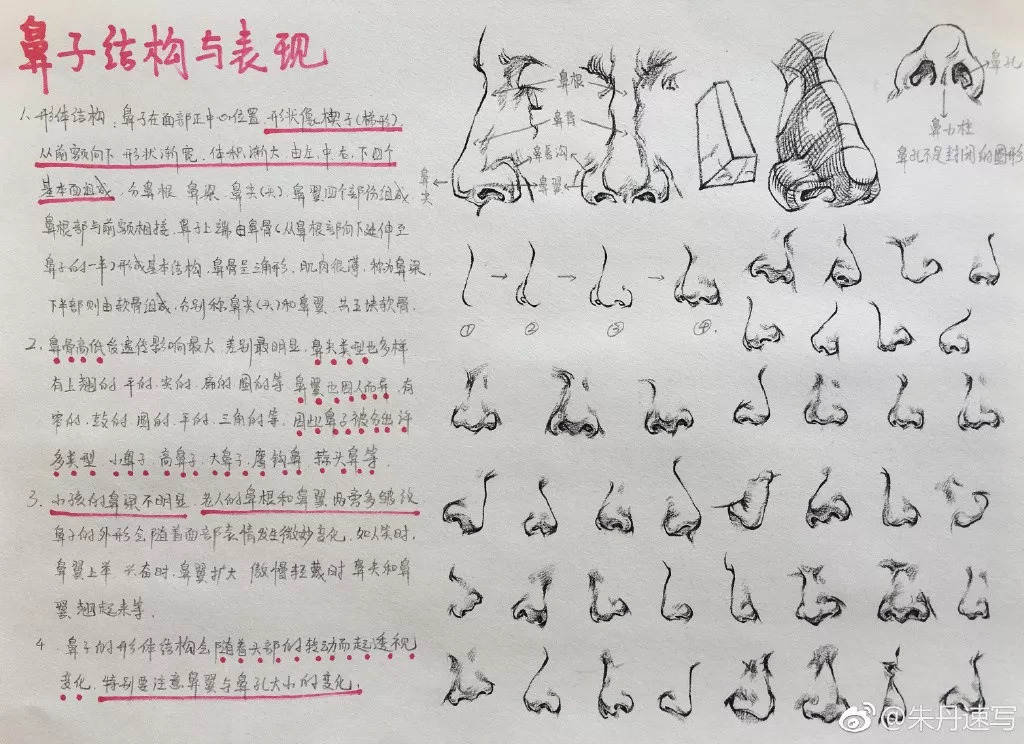 鼻子结构与表现
1、形体结构：鼻子在面部正中心位置.形状像楔子(梯形).
从前额向下.形状渐宽.体积渐大.由左.中.右.下四个
基本面组成，分鼻根.鼻梁.鼻尖(头).鼻翼四个部份组成
鼻根部与前额相接.鼻子上端由鼻骨(从鼻根部向下延伸至
鼻子的一半)形成基本结构.鼻骨呈三角形，肌肉很薄，称为鼻梁.
下半部则由软骨组成，分别称鼻尖(头)和鼻翼.共五块软骨.
2.鼻骨高低自遗传影响最大.差别最明显，鼻头类型也多样
有上翘的.平的.尖的.扁的.圆的等.鼻翼也因人而异.有
窄的.鼓的.圆的.平的.三角的等.因此鼻子被分出许
多类型.小鼻子.高鼻子.大鼻子.鹰钩鼻.蒜头鼻等.
3.小孩的鼻梁不明显.老人的鼻根和鼻翼两旁多皱纹.
鼻子的外形会随着面部表情发生微妙变化.如人笑时.
鼻翼上举.兴奋时.鼻翼扩大.傲慢轻蔑时.鼻头和鼻
翼翘起来等.
4.鼻子的形体结构会随着头部的转动而起透视
变化.特别要注意鼻翼与鼻孔大小的变化.
鼻根
鼻背
鼻唇沟
鼻翼
鼻尖
鼻孔
鼻小柱
鼻孔不是封闭的圆形
① ② ③ ④
@朱丹速写